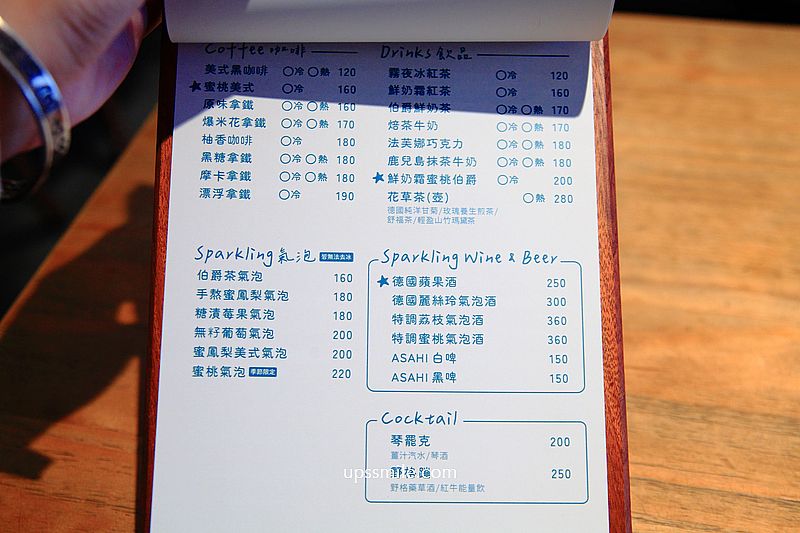 Coffee 咖啡
美式黑咖啡 ○冷 ○熱 120
★蜜桃美式 ○冷 160
原味拿鐵 ○冷 ○熱 160
爆米花拿鐵 ○冷 ○熱 170
柚香咖啡 ○冷 180
黑糖拿鐵 ○冷 ○熱 180
摩卡拿鐵 ○冷 ○熱 180
漂浮拿鐵 ○冷 190
Drinks 飲品
霧夜冰紅茶 ○冷 120
鮮奶霜紅茶 ○冷 160
伯爵鮮奶茶 ○冷 ○熱 170
焙茶牛奶 ○冷 ○熱 170
法芙娜巧克力 ○冷 ○熱 180
鹿兒島抹茶牛奶 ○冷 ○熱 180
★鮮奶霜蜜桃伯爵 ○冷 200
花草茶(壺) ○熱 280
德國純洋甘菊/玫瑰養生煎茶/
舒福茶/輕盈山竹瑪黛茶
Sparkling 氣泡 皆無法去冰
伯爵茶氣泡 160
手熬蜜鳳梨氣泡 180
糖漬莓果氣泡 180
無籽葡萄氣泡 200
蜜鳳梨美式氣泡 200
蜜桃氣泡 季節限定 220
Sparkling Wine & Beer
★德國蘋果酒 250
德國麗絲玲氣泡酒 300
特調荔枝氣泡酒 360
特調蜜桃氣泡酒 360
ASAHI 白啤 150
ASAHI 黑啤 150
Cocktail
琴罷克 200
薑汁汽水/琴酒
野格蹦 250
野格藥草酒/紅牛能量飲